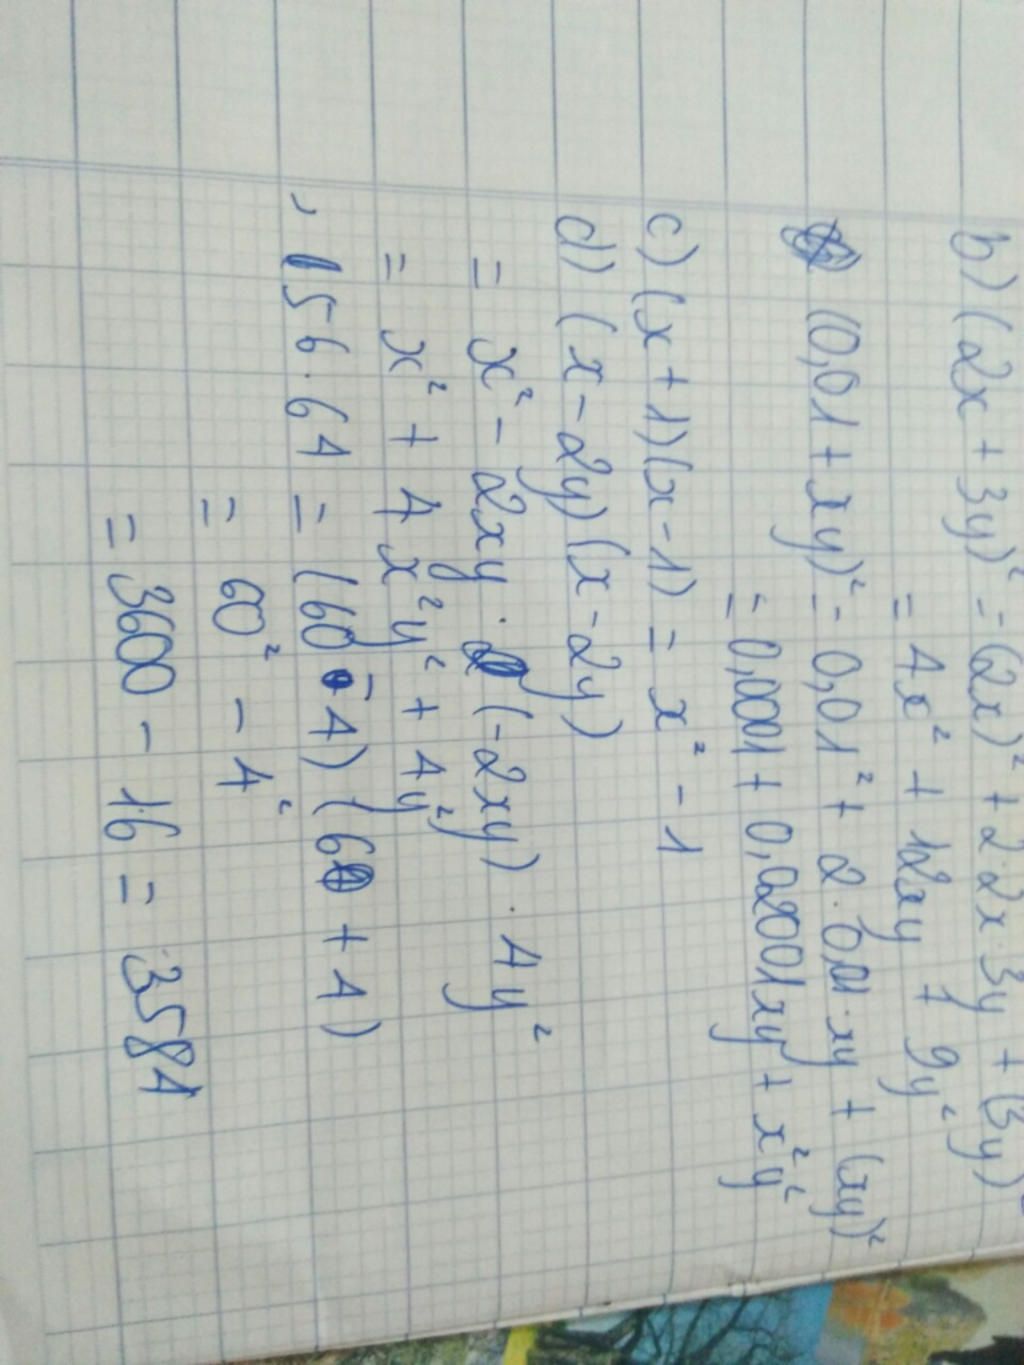 b) (2x + 3y)² = (2x)² + 2.2x.3y + (3y)²
= 4x² + 12xy + 9y²
(0,01 + xy)² = 0,01² + 2.0,01.xy + (xy)²
= 0,0001 + 0,02001xy + x²y²
c) (x + 1)(x - 1) = x² - 1
d) (x - 2y)(x - 2y)
= x² - 2xy . (-2xy) . 4y²
= x² + 4x²y² + 4y²
56.64 = (60 - 4)(60 + 4)
= 60² - 4²
= 3600 - 16 = 3584